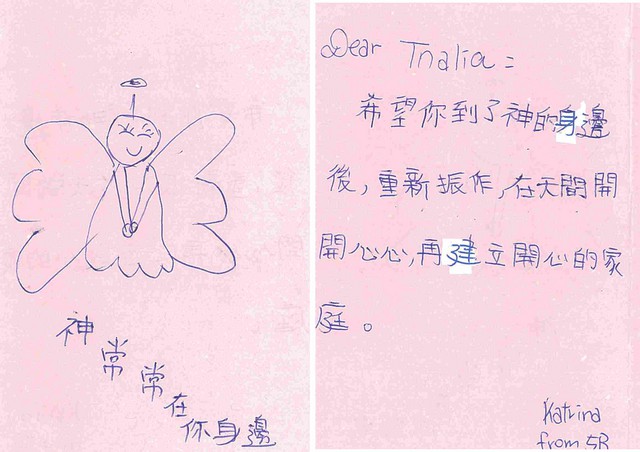 神
常
常
在
你身邊
Dear Tnalia:
希望你到了神的身邊
後,重新振作,在天間開
開心心,再建立開心的家
庭。
Katrina
from 5B